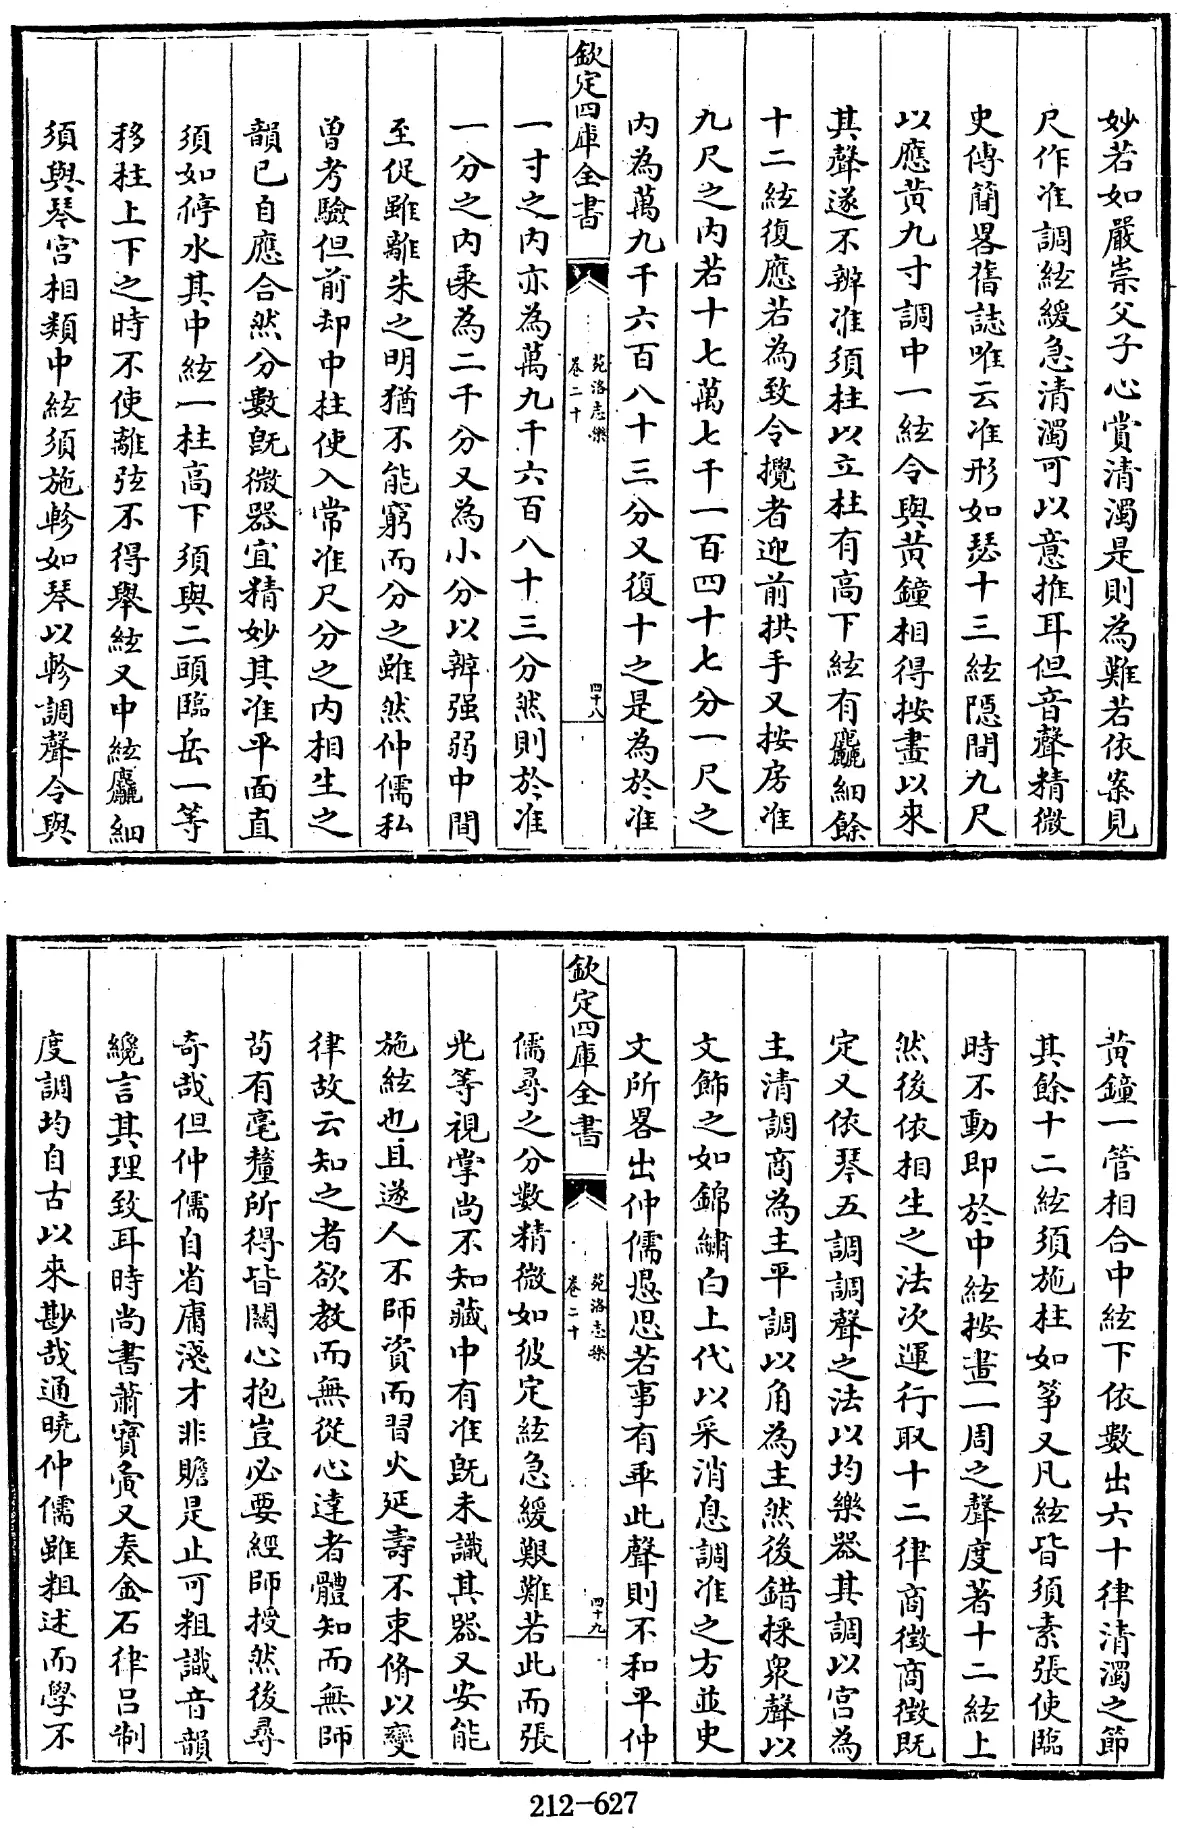 妙若如嚴崇父子心賞清濁是則為難若依案見
尺作准調絃緩急清濁可以意推耳但音聲精微
史傳簡畧舊誌唯云准形如瑟十三絃隠間九尺
以應黄九寸調中一絃令與黄鐘相得按畫以來
其聲遂不辨准須柱以立柱有高下絃有麤細餘
十二絃復應若為致令攪者迎前拱手又按房准
九尺之内若十七萬七千一百四十七分一尺之
内為萬九千六百八十三分又復十之是為於准
欽定四庫全書
苑洛志樂
卷二十
四十八
一寸之内亦為萬九千六百八十三分然則於准
一分之内乘為二千分又為小分以辨强弱中間
至促雖離朱之明猶不能窮而分之雖然仲儒私
曽考驗但前却中柱使入常准尺分之内相生之
韻已自應合然分數旣微器宜精妙其准平面直
須如停水其中絃一柱高下須與二頭臨岳一等
移柱上下之時不使離弦不得舉絃又中絃麤細
須與琴宫相類中絃須施軫如琴以軫調聲令與
黄鐘一管相合中絃下依數出六十律清濁之節
其餘十二絃須施柱如筝又凡絃皆須素張使臨
時不動即於中絃按畫一周之聲度著十二絃上
然後依相生之法次運行取十二律商徴商徴既
定又依琴五調調聲之法以均樂器其調以宫為
主清調商為主平調以角為主然後錯採衆聲以
文飾之如錦繡白上代以來消息調准之方並史
文所畧出仲儒愚思若事有乖此聲則不和平仲
欽定四庫全書
苑洛志樂
卷二十
四十九
儒尋之分數精微如彼定絃急緩艱難若此而張
光等視掌尚不知藏中有准旣未識其器又安能
施絃也且遂人不師資而習火延壽不束脩以變
律故云知之者欲教而無從心達者體知而無師
苟有毫釐所得皆關心抱豈必要經師授然後尋
奇哉但仲儒自省庸淺才非贍足止可粗識音韻
纔言其理致耳時尚書蕭寶夤又奏金石律吕制
度調均自古以來尠哉通曉仲儒雖粗述而學不
212-627